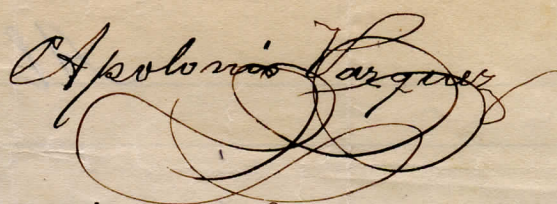 Apolonio Vazquez